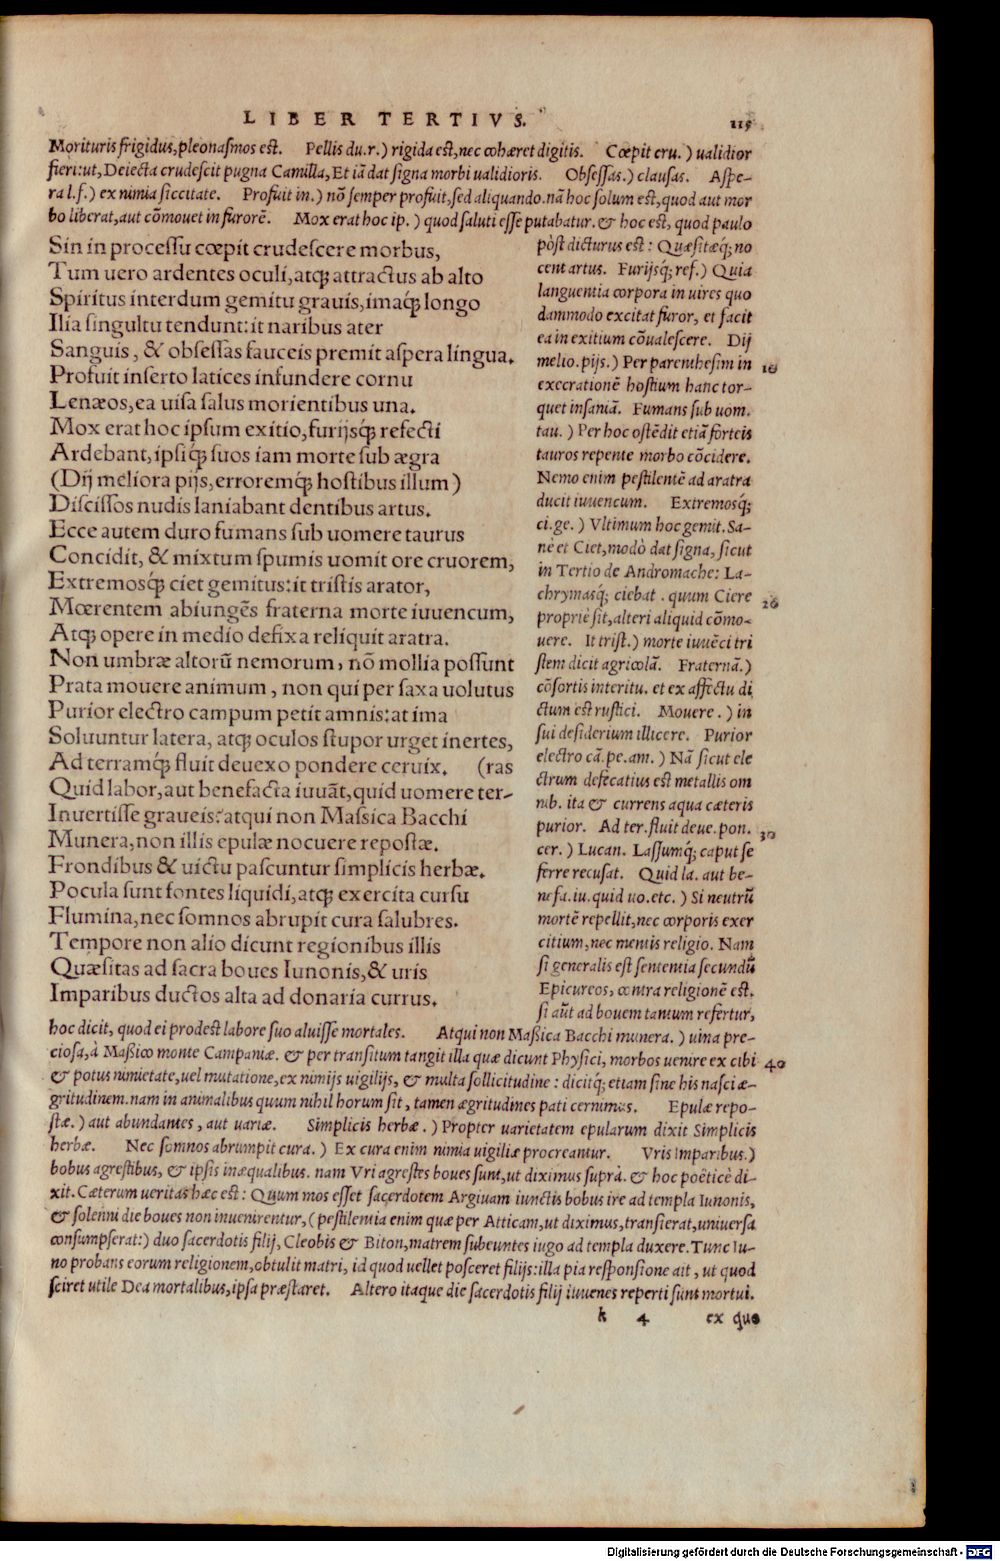 LIBER TERTIVS. 115
Morituris frigidus, pleonasmos est. Pellis du.r.) rigida est, nec cohæret digitis. Cœpit cru.) ualidior
fieri: ut, Deiecta crudescit pugna Camilla, Et iã dat signa morbi ualidioris. Obsessas.) clausas. Aspe-
ra l.f.) ex nimia siccitate. Profuit in.) nõ semper profuit, sed aliquando. nã hoc solum est, quod aut mor
bo liberat, aut cõmouet in furorẽ. Mox erat hoc ip.) quod saluti esse putabatur. & hoc est, quod paulo
Sin in processu cœpit crudescere morbus,
Tum uero ardentes oculi, atq; attractus ab alto
Spiritus interdum gemitu grauis, imaq́; longo
Ilia singultu tendunt: it naribus ater
Sanguis, & obsessas fauceis premit aspera lingua.
Profuit inserto latices infundere cornu
Lenæos, ea uisa salus morientibus una.
Mox erat hoc ipsum exitio, furijsq́; refecti
Ardebant, ipsiq́; suos iam morte sub ægra
(Dij meliora pijs, erroremq́; hostibus illum)
Discissos nudis laniabant dentibus artus.
Ecce autem duro fumans sub uomere taurus
Concidit, & mixtum spumis uomit ore cruorem,
Extremosq́; ciet gemitus: it tristis arator,
Mœrentem abiungẽs fraterna morte iuuencum,
Atq; opere in medio defixa reliquit aratra.
Non umbræ altorũ nemorum, nõ mollia possunt
Prata mouere animum, non qui per saxa uolutus
Purior electro campum petit amnis: at ima
Soluuntur latera, atq; oculos stupor urget inertes,
Ad terramq́; fluit deuexo pondere ceruix. (ras
Quid labor, aut benefacta iuuãt, quid uomere ter-
Inuertisse graueis? atqui non Massica Bacchi
Munera, non illis epulæ nocuere repostæ.
Frondibus & uictu pascuntur simplicis herbæ.
Pocula sunt fontes liquidi, atq; exercita cursu
Flumina, nec somnos abrupit cura salubres.
Tempore non alio dicunt regionibus illis
Quæsitas ad sacra boues Iunonis, & uris
Imparibus ductos alta ad donaria currus.
pòst dicturus est: Quæsitæq́; no
cent artus. Furijsq́; ref.) Quia
languentia corpora in uires quo
dammodo excitat furor, et facit
ea in exitium cõualescere. Dij
melio. pijs.) Per parenthesim in 10
execrationẽ hostium hanc tor-
quet insaniã. Fumans sub uom.
tau.) Per hoc ostẽdit etiã forteis
tauros repente morbo cõcidere.
Nemo enim pestilentẽ ad aratra
ducit iuuencum. Extremosq́;
ci.ge.) Vltimum hoc gemit. Sa-
nè et Ciet, modò dat signa, sicut
in Tertio de Andromache: La-
chrymasq́; ciebat. quum Ciere 20
propriè sit, alteri aliquid cõmo-
uere. It trist.) morte iuuẽci tri
stem dicit agricolã. Fraternã.)
cõsortis interitu. et ex affectu di
ctum est rustici. Mouere.) in
sui desiderium illicere. Purior
electro cã.pe.am.) Nã sicut ele
ctrum defecatius est metallis om
nib. ita & currens aqua cæteris
purior. Ad ter.fluit deue.pon. 30
cer.) Lucan. Lassumq́; caput se
ferre recusat. Quid la. aut be-
nefa.iu.quid uo.etc.) Si neutrũ
mortẽ repellit, nec corporis exer
citium, nec mentis religio. Nam
si generalis est sententia secundũ
Epicureos, contra religionẽ est.
si aũt ad bouem tantum refertur,
hoc dicit, quod ei prodest labore suo aluisse mortales. Atqui non Maßica Bacchi munera.) uina pre-
ciosa, à Maßico monte Campaniæ. & per transitum tangit illa quæ dicunt Physici, morbos uenire ex cibi 40
& potus nimietate, uel mutatione, ex nimijs uigilijs, & multa sollicitudine: dicitq́; etiam sine his nasci æ-
gritudinem. nam in animalibus quum nihil horum sit, tamen ægritudines pati cernimus. Epulæ repo-
stæ.) aut abundantes, aut uariæ. Simplicis herbæ.) Propter uarietatem epularum dixit Simplicis
herbæ. Nec somnos abrumpit cura.) Ex cura enim nimia uigiliæ procreantur. Vris Imparibus.)
bobus agrestibus, & ipsis inæqualibus. nam Vri agrestes boues sunt, ut diximus suprà. & hoc poëticè di-
xit. Cæterum ueritas hæc est: Quum mos esset sacerdotem Argiuam iunctis bobus ire ad templa Iunonis,
& solenni die boues non inuenirentur, (pestilentia enim quæ per Atticam, ut diximus, transierat, uniuersa
consumpserat:) duo sacerdotis filij, Cleobis & Biton, matrem subeuntes iugo ad templa duxere. Tunc Iu-
no probans eorum religionem, obtulit matri, id quod uellet posceret filijs: illa pia responsione ait, ut quod
sciret utile Dea mortalibus, ipsa præstaret. Altero itaque die sacerdotis filij iuuenes reperti sunt mortui.
k 4 ex quo
Digitalisierung gefördert durch die Deutsche Forschungsgemeinschaft - DFG